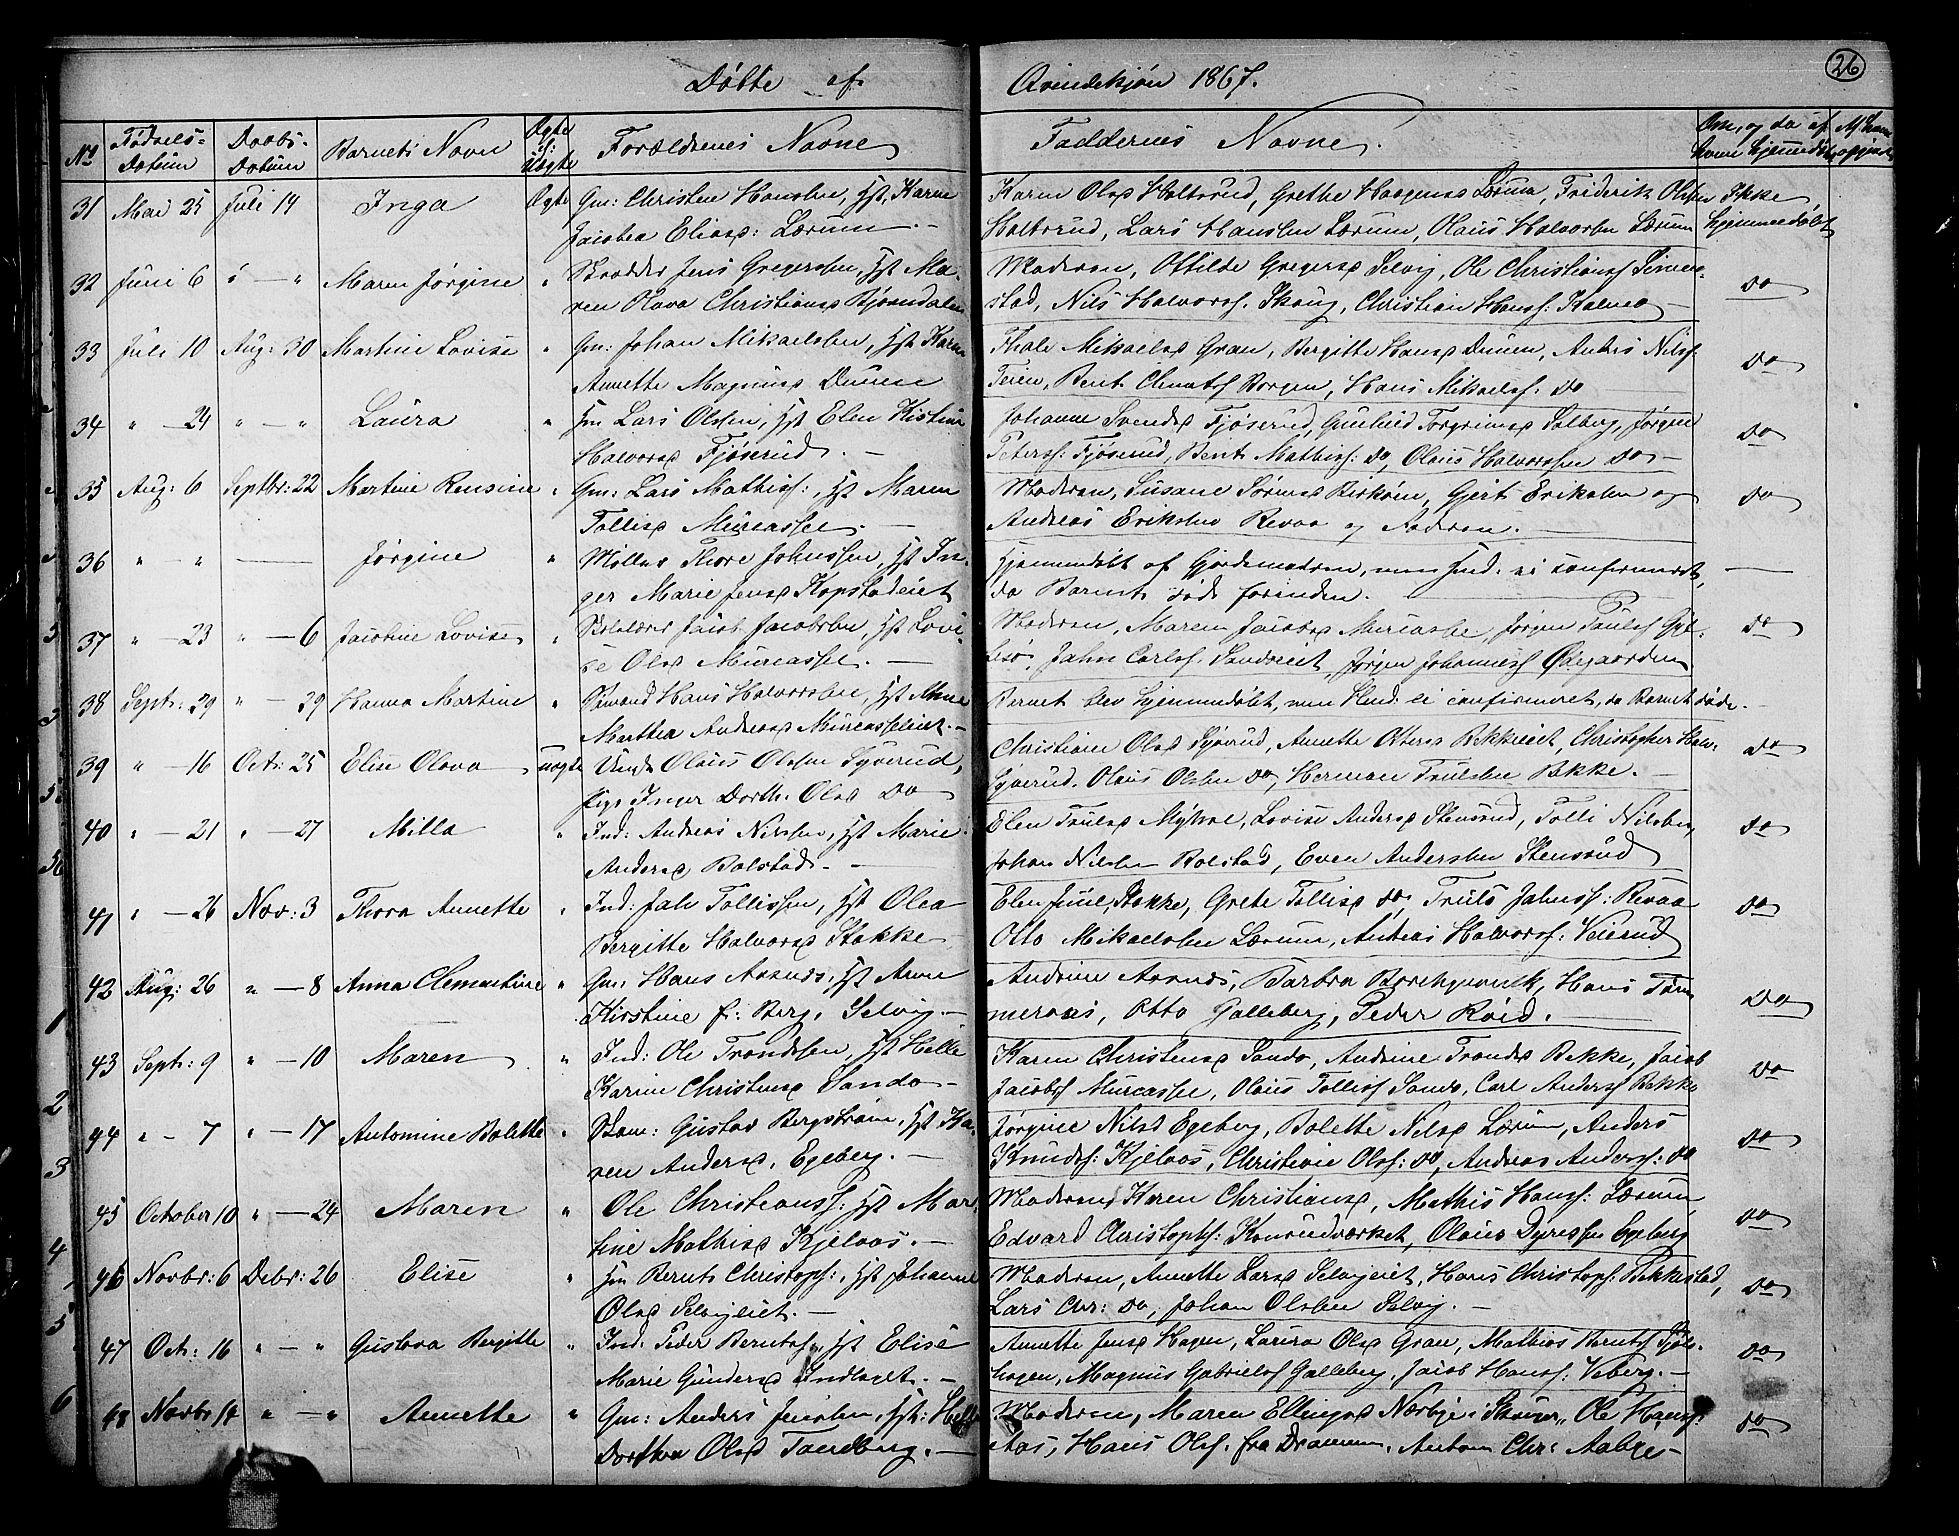 Døbte af Qvindekjøn 1867.
26
No Fødsels- Datum Daabs- Datum Barnets Navn Ægte el: Uægte Forældrenes Navne Faddernes Navne. Om, og da af hvem hjemmedøbt
31 Mai 25 Juli 14 Inga Ægte Gm: Christen Hansen, Hst. Karen Jacobea Eliasd: Lærum. —
Karen Olsd Holtsrud, Grethe Haagensd Lærum, Friderik Olsen Holtsrud, Lars Hansen Lærum, Olaus Halvorsen Lærum Ikke hjemmedøbt
32 Juni 6 " — " Maren Jørgine " Skrædder Jens Gregersen, Hst Maren Olava Christiansd Bjørndalen
Moderen, Ottilde Gregersd Selvig, Ole Christians Simenstad, Nils Halvors. Skoug, Christian Hanss: Kalnes do
33 Juli 10 Aug: 30 Martine Lovise " Gm: Johan Mikaelsen, Hst Karen Annette Magnusd Duuen
Thale Mikaelsd Gran, Bergitte Hansd Duuen, Anders Nilss Teien, Bent Clemets Borgen, Hans Mikaels: do do
34 " — 24 " — " Laura " Hm Lars Olsen, Hst Elen Kistine Halvorsd Fjøserud. —
Johanne Svendsd Fjøserud, Gunhild Torgrimsd Solberg, Jørgen Peterss: Fjøserud, Bent Mathiss: do, Olaus Halvorssen do — do
35 Aug: 6 Septbr: 22 Martine Rensine " Gm: Lars Mathiss:, Hst Maren Tollisd Murcassee. —
Moderen, Susane Sørensd Kirkøen, Gjert Eriksen og Andreas Eriksen Revaa og Faderen. — do
36 " — " — Jørgine " Møller Thore Johnssen, Hst Inger Marie Jensd Kopstadeiet
Hjemmedøbt af Gjordemoderen, men ei confirmeret, da Barnet døde forinden. —
37 " — 23 " — 6 Jacobine Lovise " Jacob Jacobsen, Hst Lovise Olsd Murcassee. —
Moderen, Maren Jacobsd Murcassee, Jørgen Pauls, John Carls. Sandveiet, Jørgen Johanness Ødegaarden do
38 Septr: 29 " — 29 Hanna Martine " Hans Halvorsen, Hst Anne Marthea Andersd Murcasseeiet. —
Barnet blev hjemmedøbt, men ei confirmeret, da Barnet døde. —
39 " — 16 Oct: 25 Elise Olava uægte Unk Olaus Olsen Syverud, Pige Inger Dorth: Olsd do
Christiane Olsd Syverud, Annette Ottersd Bekkeiet, Christopher Hal. Syverud. Olaus Olsen do, Herman Trulsen Bekke. — do
40 " — 21 " — 27 Milla " Ind: Andreas Nilssen, Hst Marie Andersd Bolstad. —
Elen Trulsd Myhre, Lovise Andersd Stensrud, Tolli Nilsen, Johan Nilsen Bolstad, Even Andersen Stensrud do
41 " — 26 Nov: 3 Thora Annette " Ind: Joh Tollissen, Hst Olea Bergitte Halvorsd Stokke —
Elen Juul, Stokke, Grete Tollisd do, Truls Johnss: Revaa Otto Mikaelsen Lærum, Andreas Halvorss: Veierud do
42 Aug: 26 " — 8 Anna Clementine " Gm: Hans Aasnæs, Hst Anne Kirstine f: Berg, Selvig. —
Andrine Aasnæs, Barbra Borchgrevink, Hans Tømmeraas, Otto Galleberg, Peder Røed. — do
43 Septr: 9 " — 10 Maren " Ind: Ole Trondsen, Hst Helle Karine Christensd Sando —
Karen Christensd Sando, Andrine Trondsd Bekke, Jacob Jacobs Murcassee, Olaus Tolliss Sando, Carl Anderss Bekke do
44 " — 7 " — 17 Antomine Bolette " Gustav Bergstrøm, Hst Karen Andersd, Egeberg. —
Jørgine Nilsd Egeberg, Bolette Nilsd Lærum, Anders Knudss: Kjelaas, Christian Olss: do, Andreas Anderss: do do
45 October 10 " — 24 Maren " Ole Christianss: Hst Martine Mathisd Kjelaas. —
Moderen Karen Christiansd, Mathis Hanss: Lærum Edvard Christophs: Konrudværket, Olaus Dyressen Egeberg do
46 Novbr: 6 Debr: 26 Elise " Hm Bernt Christoph:, Hst Johanne Olsd Selvigeiet. —
Moderen, Annette Larsd Selvigeiet, Hans Christoph: Bekkestad, Lars Chr: do, Johan Olsen Selvig. — do
47 Oct: 16 " — " Gustava Bergitte " Ind: Peder Berntss, Hst Elise Marie Gundersd Indlaget. —
Annette Jensd Hagen, Laura Olsd Gran, Mathias Berntss, Magnus Gabrielss Galleberg, Jacob Hanss: Viberg. — do
48 Novbr 14 " — " Annette " Gm: Anders Jensen, Hst: Helle Dorthea Olsd Tandberg. —
Moderen, Maren Ellingsd Nærbye i Skouger, Ole Hanss: Aas, Hans Olss. fra Drammen, Anton Chr: Aabye — do